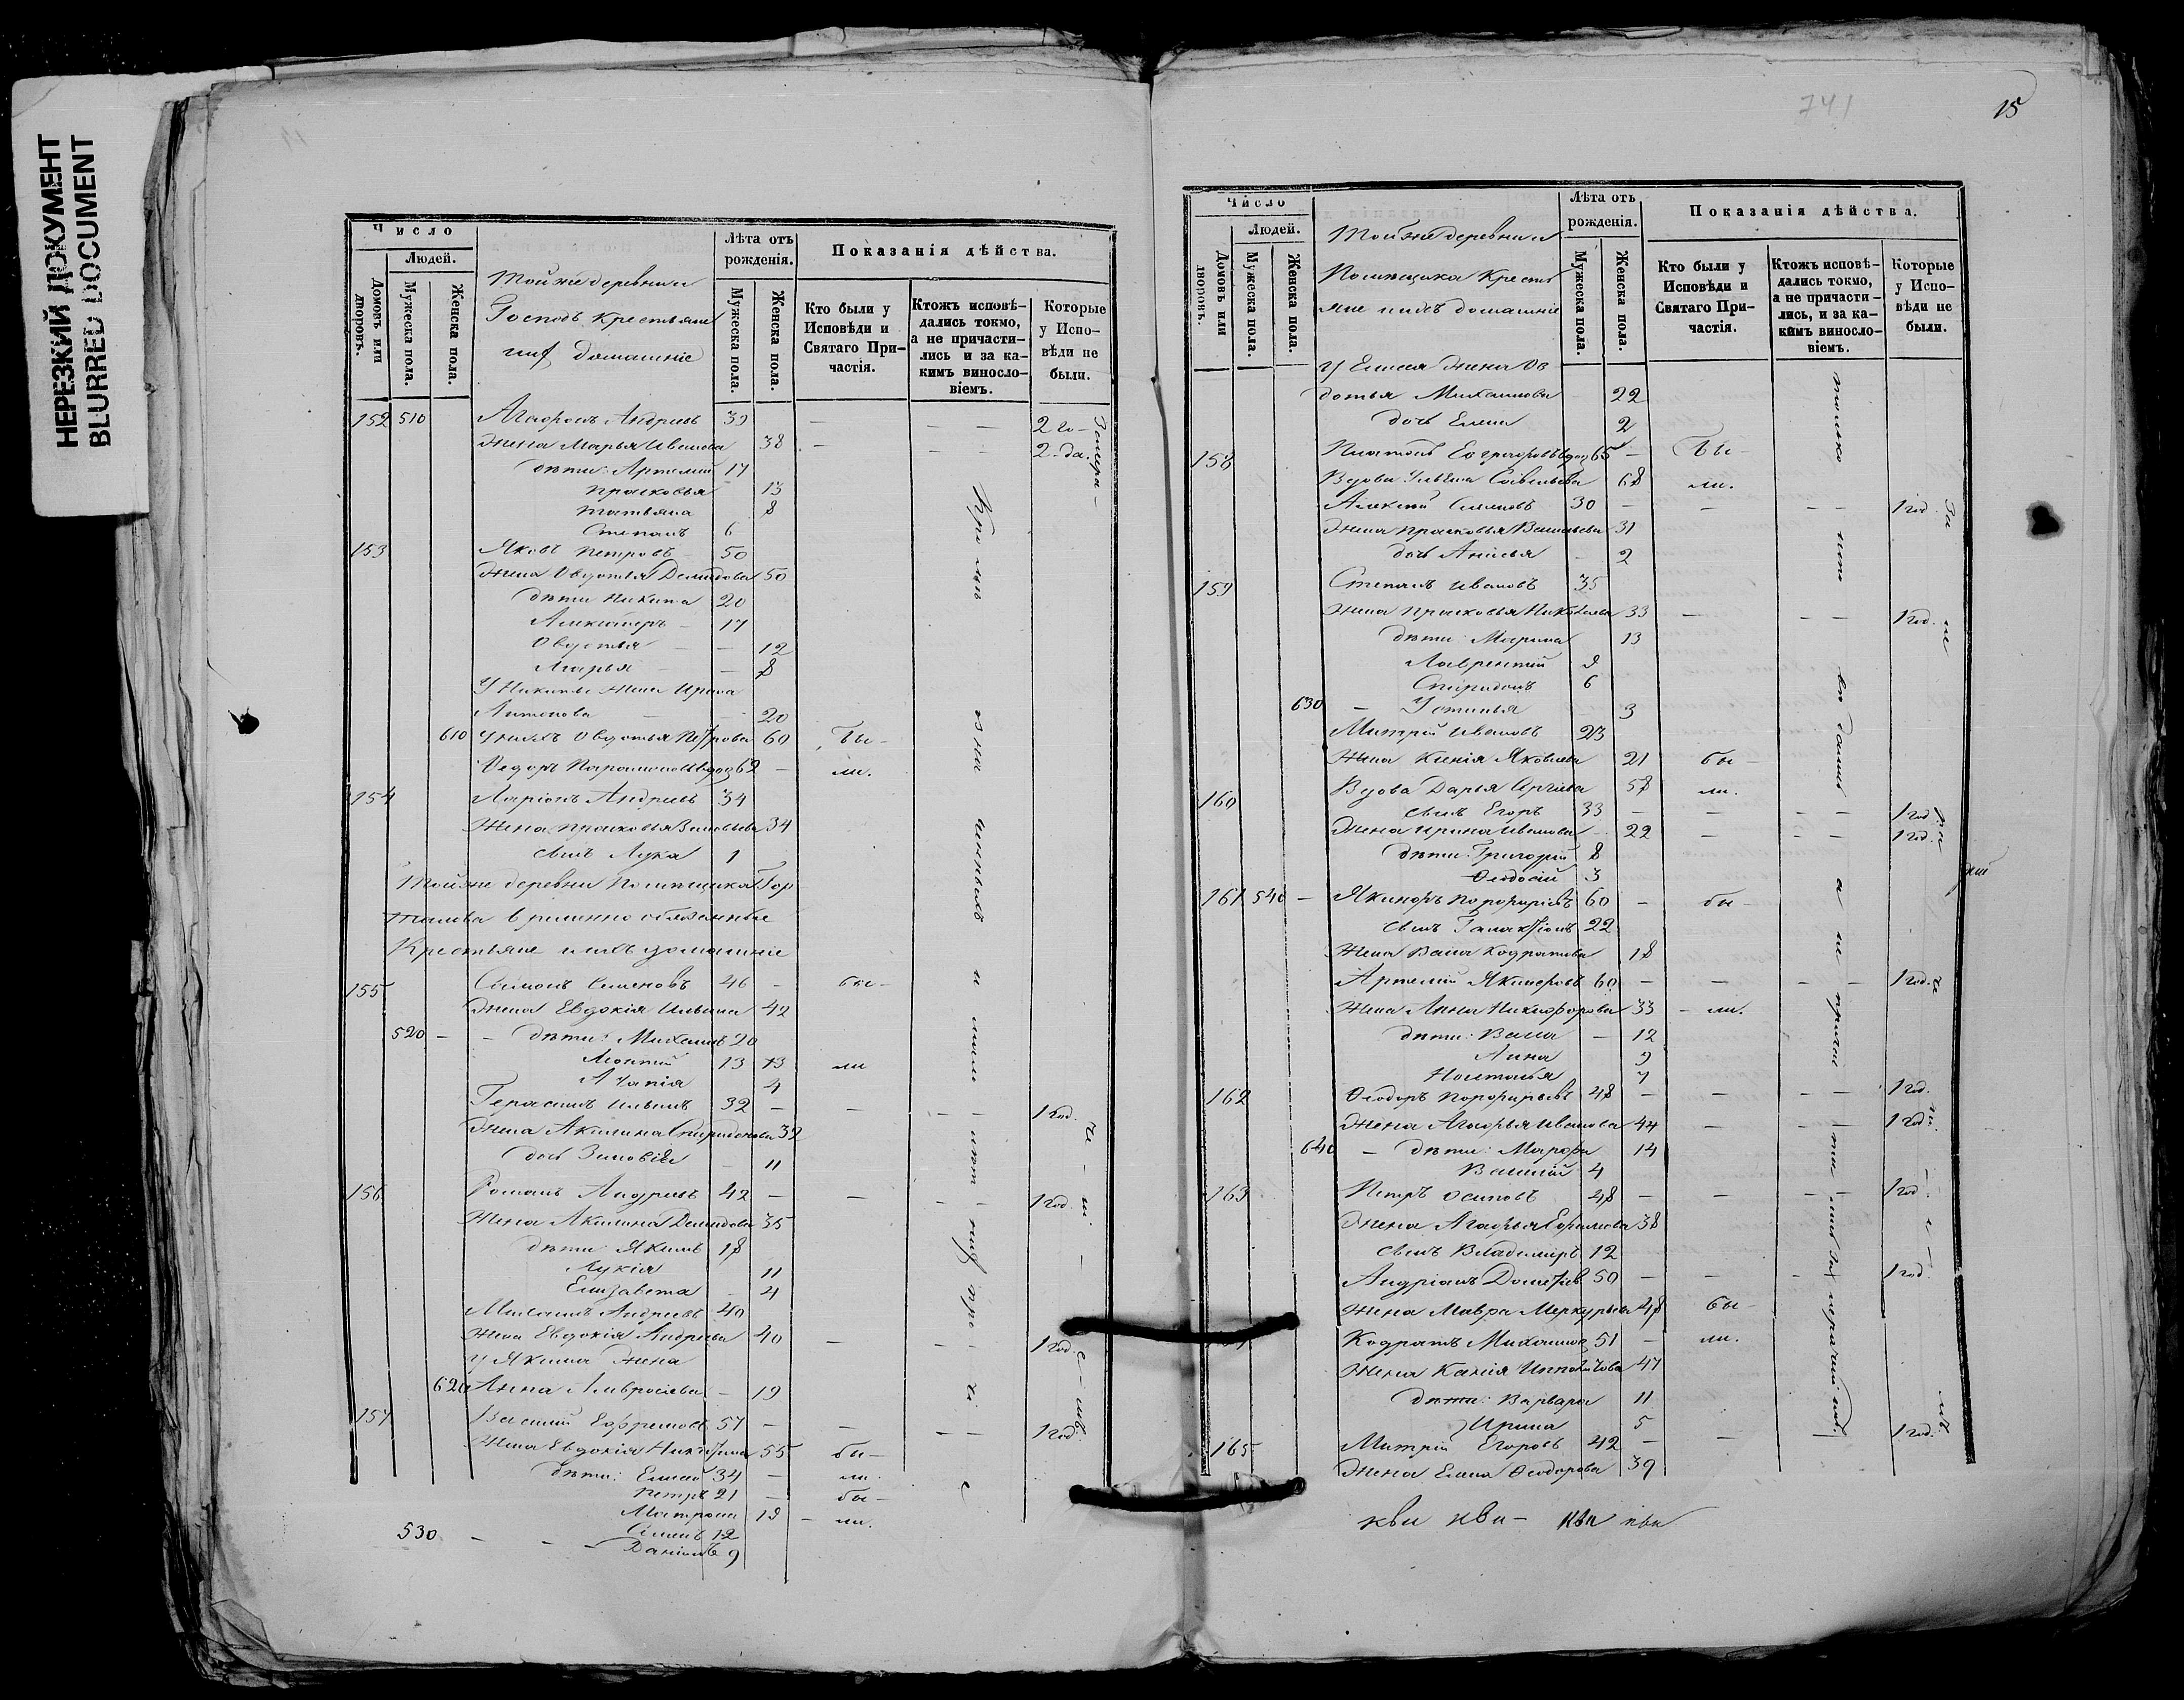 НЕРЕЗКИЙ ДОКУМЕНТ
BLURRED DOCUMENT
Число
Людей.
Домовъ или дворовъ.
Мужеска пола.
Женска пола.
Тойже деревни
Господъ Крестьяне
ихъ домашніе
Лѣта отъ рожденія.
Мужеска пола.
Женска пола.
Показанія дѣйства.
Кто были у Исповѣди и Святаго Причастія.
Ктожъ исповѣдались токмо, а не причастились и за какимъ винословіемъ.
Которые у Исповѣди не были.
152 510 Агафонъ Андреевъ 39 — — — 2 го-
Жена Марья Иванова 38 — — — 2-да.
дѣти: Артемій 17
Прасковья 13
Татьяна 8
Степанъ 6
153 Яковъ Петровъ 50
Жена Овдотья Демидова 50
дѣти Никита 20
17
Овдотья — — 12
Марья — — 8
У Никиты жена Ирина
Антонова — 20
610 У нихъ Овдотья Петрова 60 Бы-
Ѳедоръ Парамоновъ вдов 62 — ли.
154 Ларіонъ Андреевъ 34
Жена Прасковья Зиновьева 34
сынъ Лука 1
Тойже деревни Помѣщика Гор
временно обязанные
Крестьяне ихъ домашніе
155 Симонъ Семеновъ 46 — бы-
Жена Евдокія Ильина 42
520 — — дѣти: Михаилъ 20
13 13 ли
4
Герасимъ Ильинъ 32 — — — — 1 год.
Жена Акилина Спиридонова 32
дочь Зиновія — 11
156 Романъ Андреевъ 42 — — — 1 год.
Жена Акилина Демидова 35
дѣти: Якимъ 18
Лукія 11
Елизавета — 4
Михаилъ Андреевъ 40
Жена Евдокія Андреева 40 — — — 1 год.
У Якима жена
620 Анна Амвросіева — 19
157 Василій Ефремовъ 57 — — — — 1 год.
Жена Евдокія Никитина 55 бы-
дѣти: Елисей 34 — ли.
Петръ 21 — бы-
Матрона 18 — ли.
Семенъ 12
530 — — — Даніилъ 9
741
15
Число
Людей.
Домовъ или дворовъ.
Мужеска пола.
Женска пола.
Тойже деревни
Помѣщика Кресть
яне ихъ домашніе
Лѣта отъ рожденія.
Мужеска пола.
Женска пола.
Показанія дѣйства.
Кто были у Исповѣди и Святаго Причастія.
Ктожъ исповѣдались токмо, а не причастились, и за какимъ винословіемъ.
Которые у Исповѣди не были.
У Елисея жена Ов
дотья Михаилова 22
дочь Елена 2
158 Платонъ вдов 65 — Бы-
Вдова Ульяна Савельева 68 ли.
Алексій Семеновъ 30 — — — — 1 год.
Жена Прасковья Васильева 31
дочь Анисья — 2
159 Степанъ Ивановъ 35
Жена Прасковья Николаева 33 — — — 1 год.
дѣти: Марина 13
Лаврентій 9
Спиридонъ 6
630 — Устинья 3
Митрій Ивановъ 23
Жена Ксенія Яковлева 21 бы-
160 Вдова Дарья 58 ли.
сынъ Егоръ 33 — — — — 1 год
Жена Ирина Иванова 22 — — — 1 год.
дѣти: Григорій 8
Ѳеодосій 3
161 540 — Порфирьевъ 60 — бы-
сынъ Галактіонъ 22
Жена Васса Кодратова 18
Артемій 60 — — — — 1 год.
Жена Анна Никифорова 33 — ли.
дѣти: Васса — 12
Анна 9
Настасья 7
162 Ѳеодоръ Порфирьевъ 48 — — — — 1 год.
Жена Агафья Иванова 44 — — — 1 год.
640 — дѣти: Марфа 14
Василій 4
163 Петръ Осиповъ 48 — — — — 1 год
Жена Агафья Ефремова 38
сынъ Владиміръ 12
Андріанъ 50 — — — 1 год
Жена Мавра Меркурьева 48 бы-
Кодратъ Михаилов 51 — ли.
Жена Ипполитова 47
дѣти: Варвара 11
Ирина 5
165 Митрій Егоровъ 42 — — 1 год.
Жена Елена Ѳеодорова 39